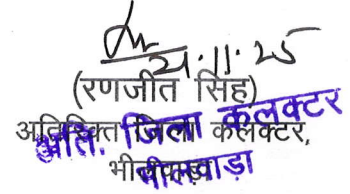 21.11.25
(रणजीत सिंह)
अतिरिक्त जिला कलक्टर,
भीलवाड़ा
अति. जिला कलक्टर
भीलवाड़ा